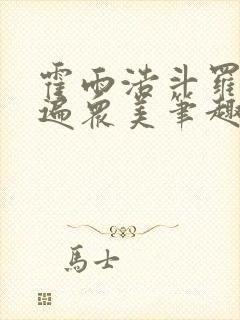 霍雨浩斗羅
遍眾美筆趣
馬士